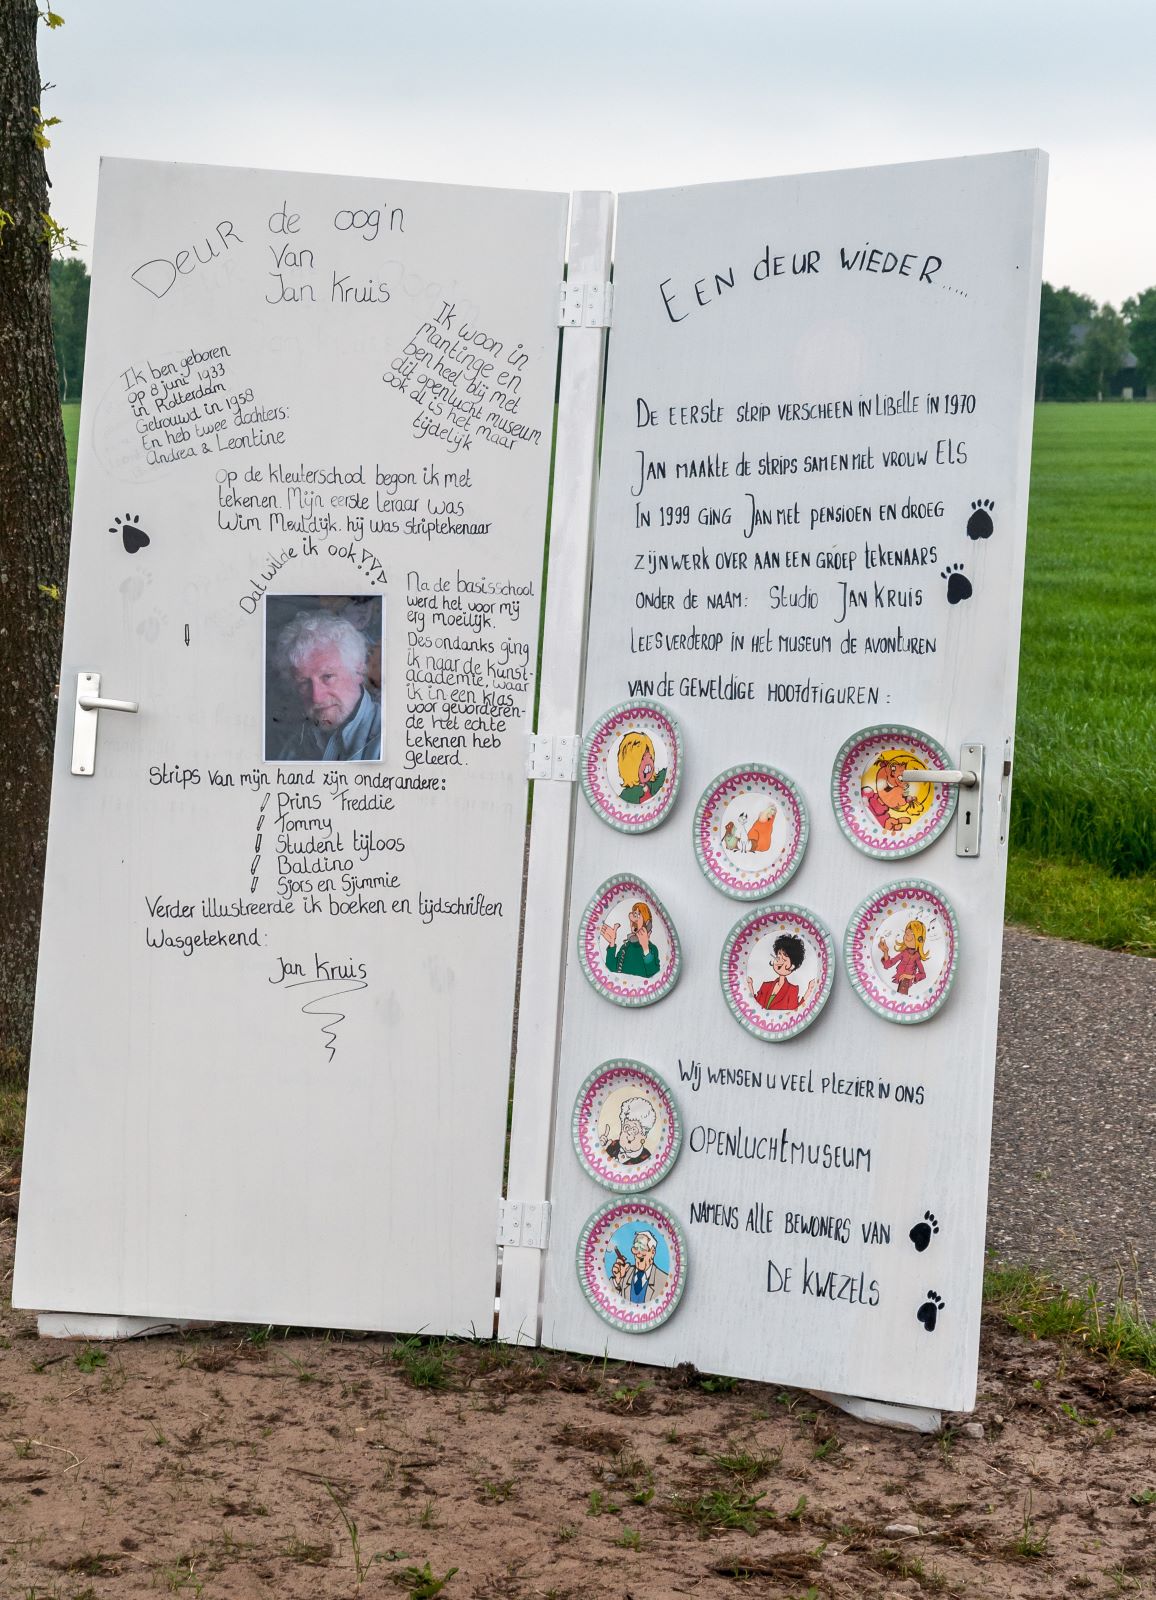 DEUR de oog'n
Van
Jan Kruis
Ik ben geboren
op 8 juni 1933
in Rotterdam
Getrouwd in 1958
En heb twee dochters:
Andrea & Leontine
Ik woon in
mantinge en
ben heel blij met
dit openlucht museum
ook al is het maar
tijdelijk
Op de kleuterschool begon ik met
tekenen. Mijn eerste leraar was
Wim Meuldijk. hij was striptekenaar
Dat wilde ik ook!!!
Na de basisschool
werd het voor mij
erg moeilijk.
Desondanks ging
ik naar de kunst-
academie, waar
ik in een klas
voor gevorderen-
de het echte
tekenen heb
geleerd.
Strips van mijn hand zijn onder andere:
Prins Freddie
Tommy
Student tijloos
Baldino
Sjors en Sjimmie
Verder illustreerde ik boeken en tijdschriften
Wasgetekend:
Jan Kruis
EEN dEUR WIEDER.....
DE EERSTE STRIP VERSCHEEN IN LIBELLE IN 1970
JAN MAAKTE DE STRIPS SAMEN MET VROUW ELS
IN 1999 GING JAN MET PENSIOEN EN DROEG
ZIJN WERK OVER AAN EEN GROEP TEKENAARS
ONDER DE NAAM: Studio JAN KRUIS
LEES VERDEROP IN HET MUSEUM DE AVONTUREN
VAN DE GEWELDIGE HOOFDFIGUREN:
WIJ WENSEN U VEEL PLEZIER IN ONS
OPENLUCHTMUSEUM
NAMENS ALLE BEWONERS VAN
DE KWEZELS